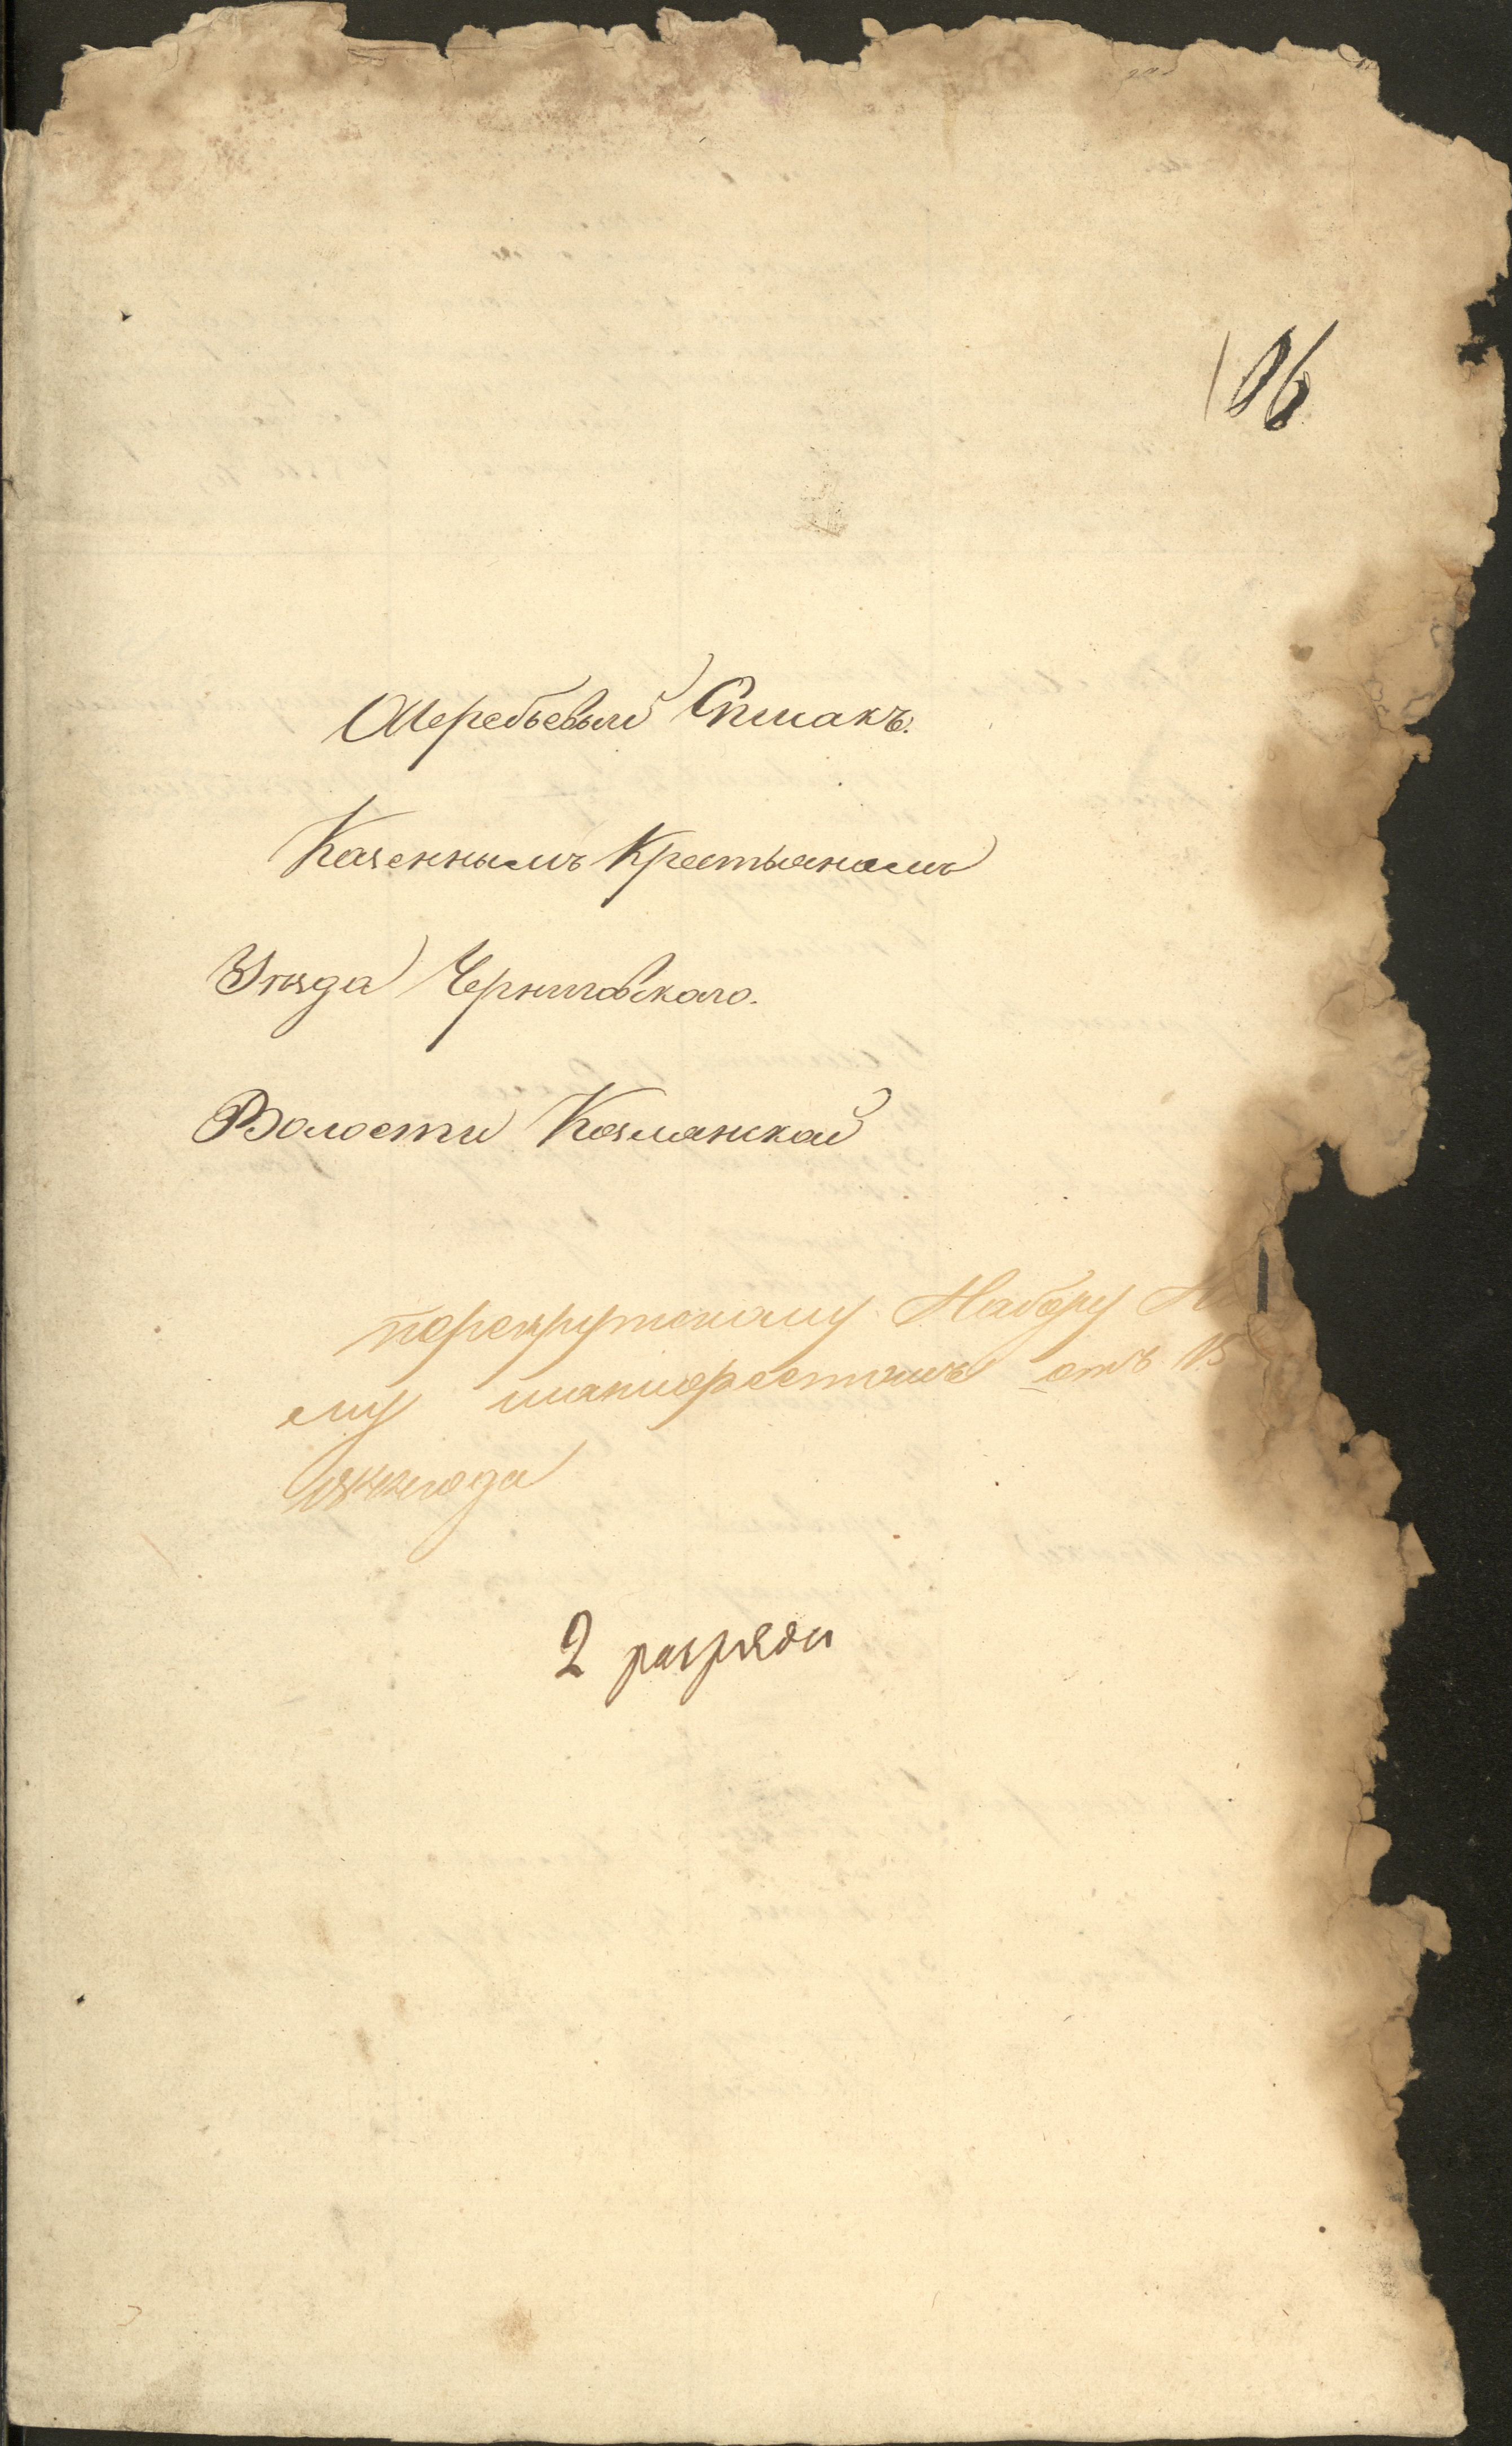 106
Жеребьевый Списакъ.
Казеннымъ Крестьянамъ
Уѣзда Черниговскаго.
Волости Козлянской
порекрутскому Набору
ему манифестомъ отъ 15
года
2 разряда